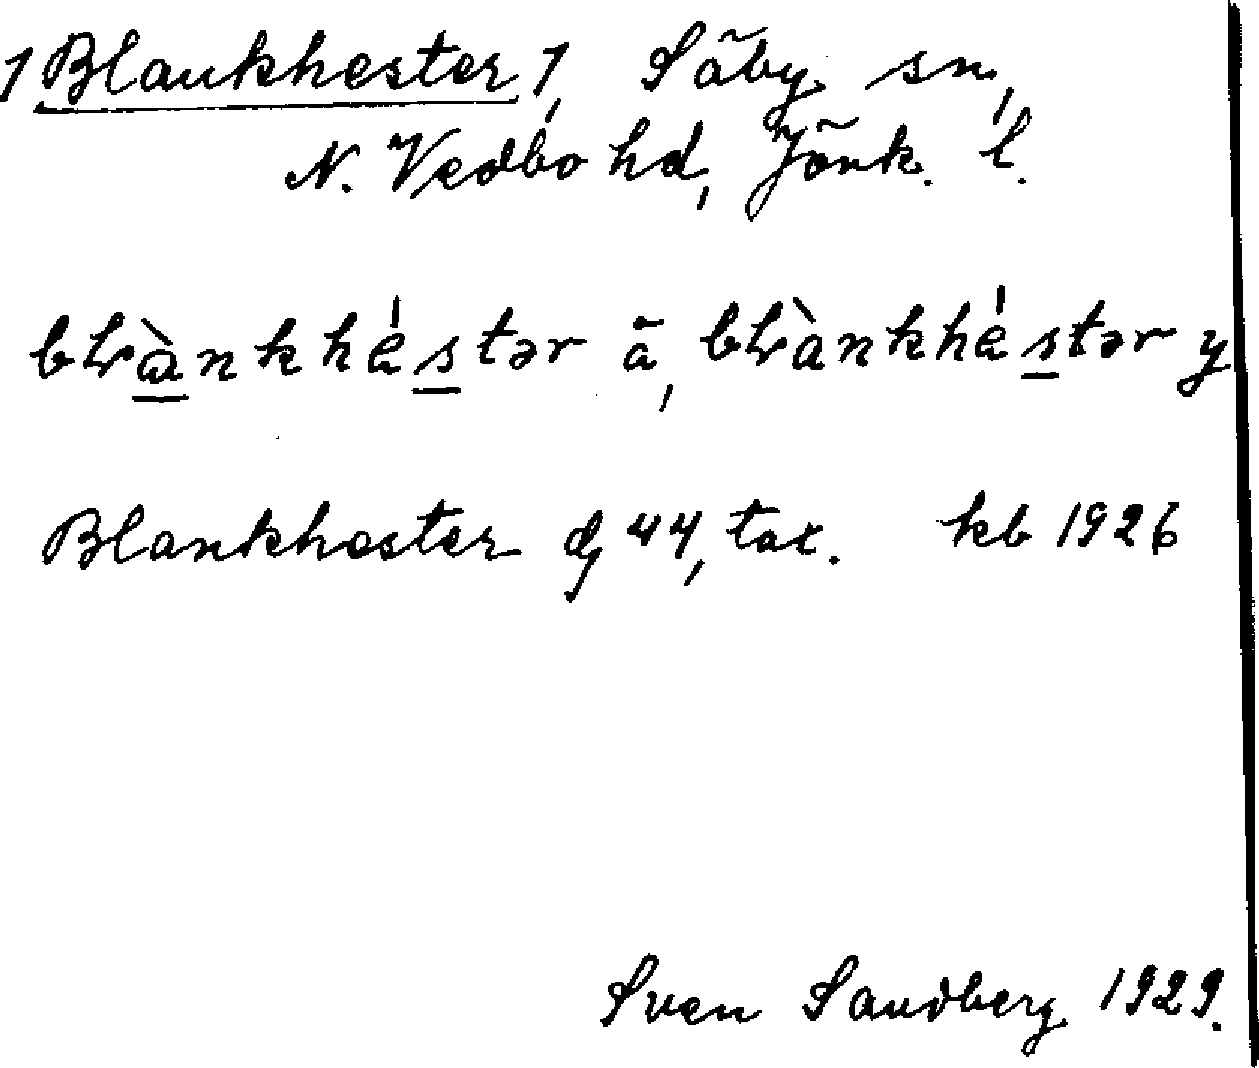 1 Blankhester 1, Säby sn,
N. Vedbo hd, Jönk. l.
blànkhéstər ä, blànkhéstər y
Blankhester dj 44, tax. kb 1926
Sven Sandberg 1929.